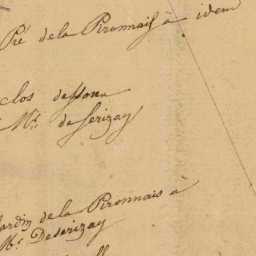 Pré de la Pironnais à idem
clos dessous
Mr. de Serizay
Jardin de la Pironnais à
Mr. Deserizay